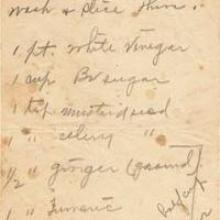 Wash & slice thin.
1 pt white vinegar
1 cup Br sugar
1 tsp mustard seed
" celery "
1/2 " ginger (ground)
1 " Tumeric